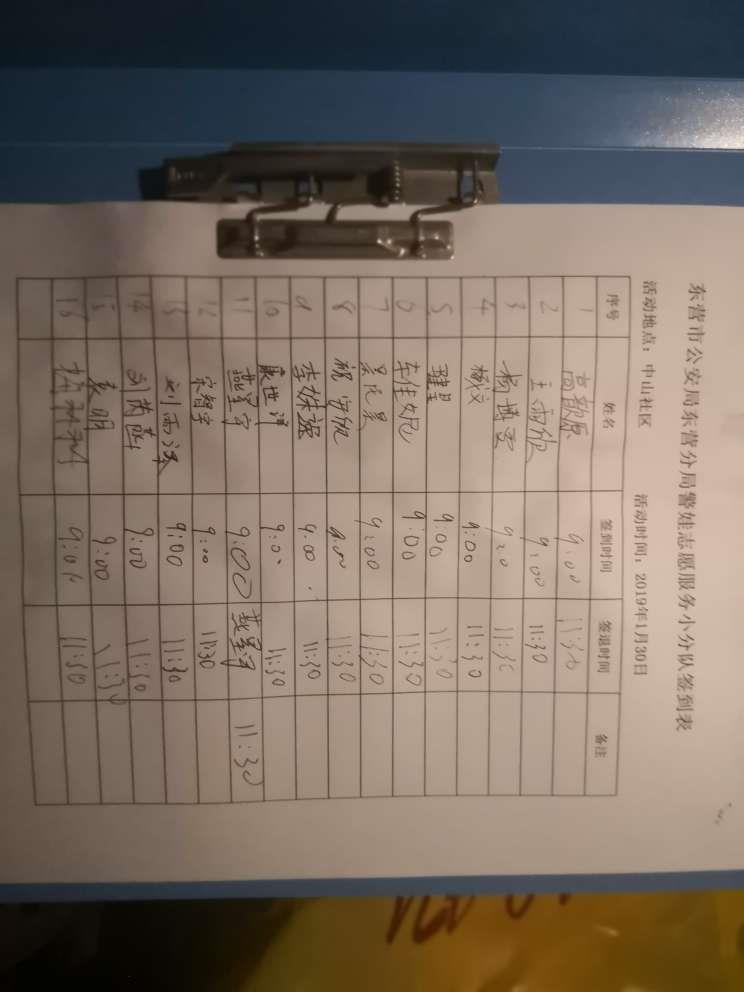 东营市公安局东营分局警娃志愿服务小分队签到表
活动地点：中山社区 活动时间：2019年1月30日
序号 姓名 签到时间 签退时间 备注
1 高歆原 9:00 11:30
2 王雨欣 9:00 11:30
3 杨博雯 9:00 11:30
4 9:00 11:30
5 9:00 11:30
6 车佳妮 9:00 11:30
7 9:00 11:30
8 9:00 11:30
9 李姝璇 9:00 11:30
10 9:00 11:30
11 9:00 11:30
12 宋智宇 9:00 11:30
13 刘雨泽 9:00 11:30
14 9:00 11:30
15 袁明 9:00 11:30
16 11:30